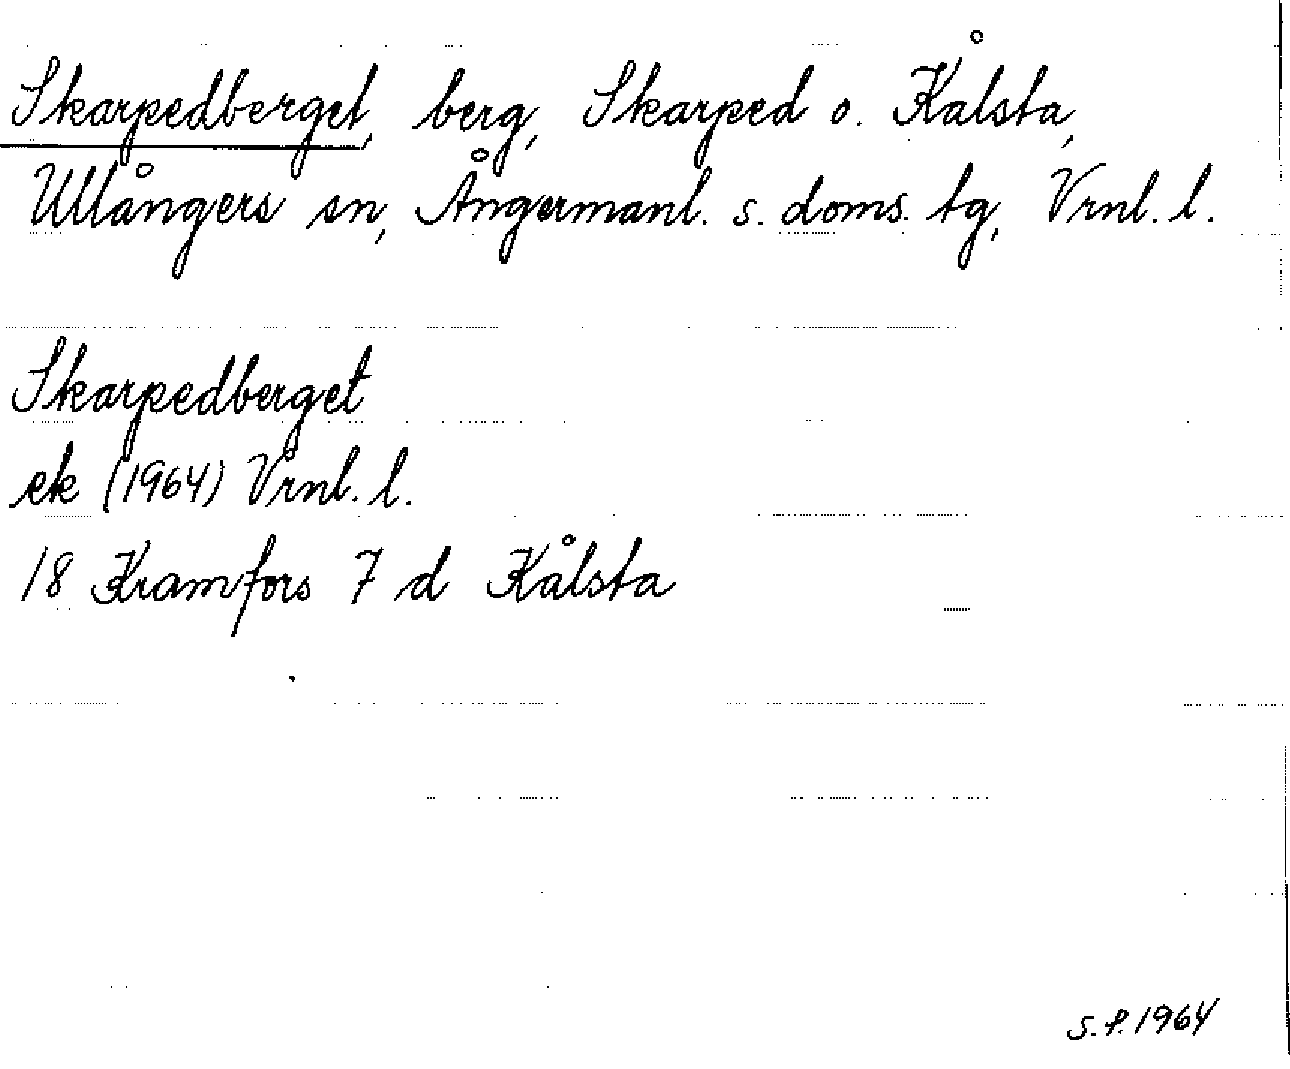 Skarpedberget, berg, Skarped o. Kålsta,
Ullångers sn, Ångermanl. s. doms. tg, Vrnl. l.
Skarpedberget
ek (1964) Vrnl. l.
18 Kramfors 7 d Kålsta
S.P. 1964